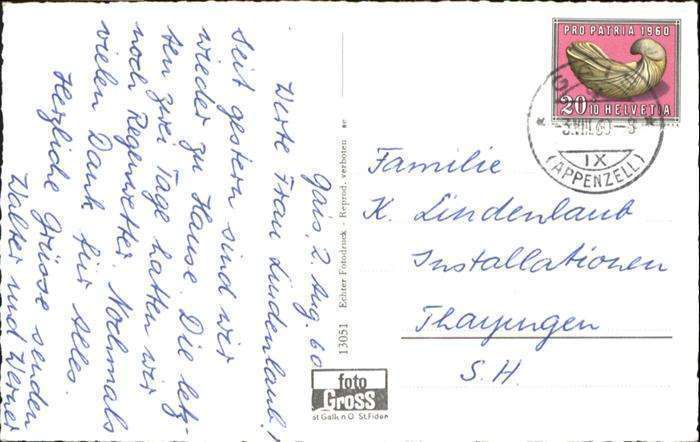 Gais, 2. Aug. 60
Werte Frau Lindenlaub!
Seit gestern sind wir
wieder zu Hause. Die letz-
ten zwei Tage hatten wir
noch Regenwetter. Nochmals
vielen Dank für Alles.
Herzliche Grüsse senden
Walter und
13051 Echter Fotodruck - Reprod. verboten
foto
GROSS
St. Gallen O St. Fiden
PRO PATRIA 1960
20+10 HELVETIA
-3.VIII.60-8
IX
(APPENZELL)
Familie
K. Lindenlaub
Installationen
Thayngen
S.H.